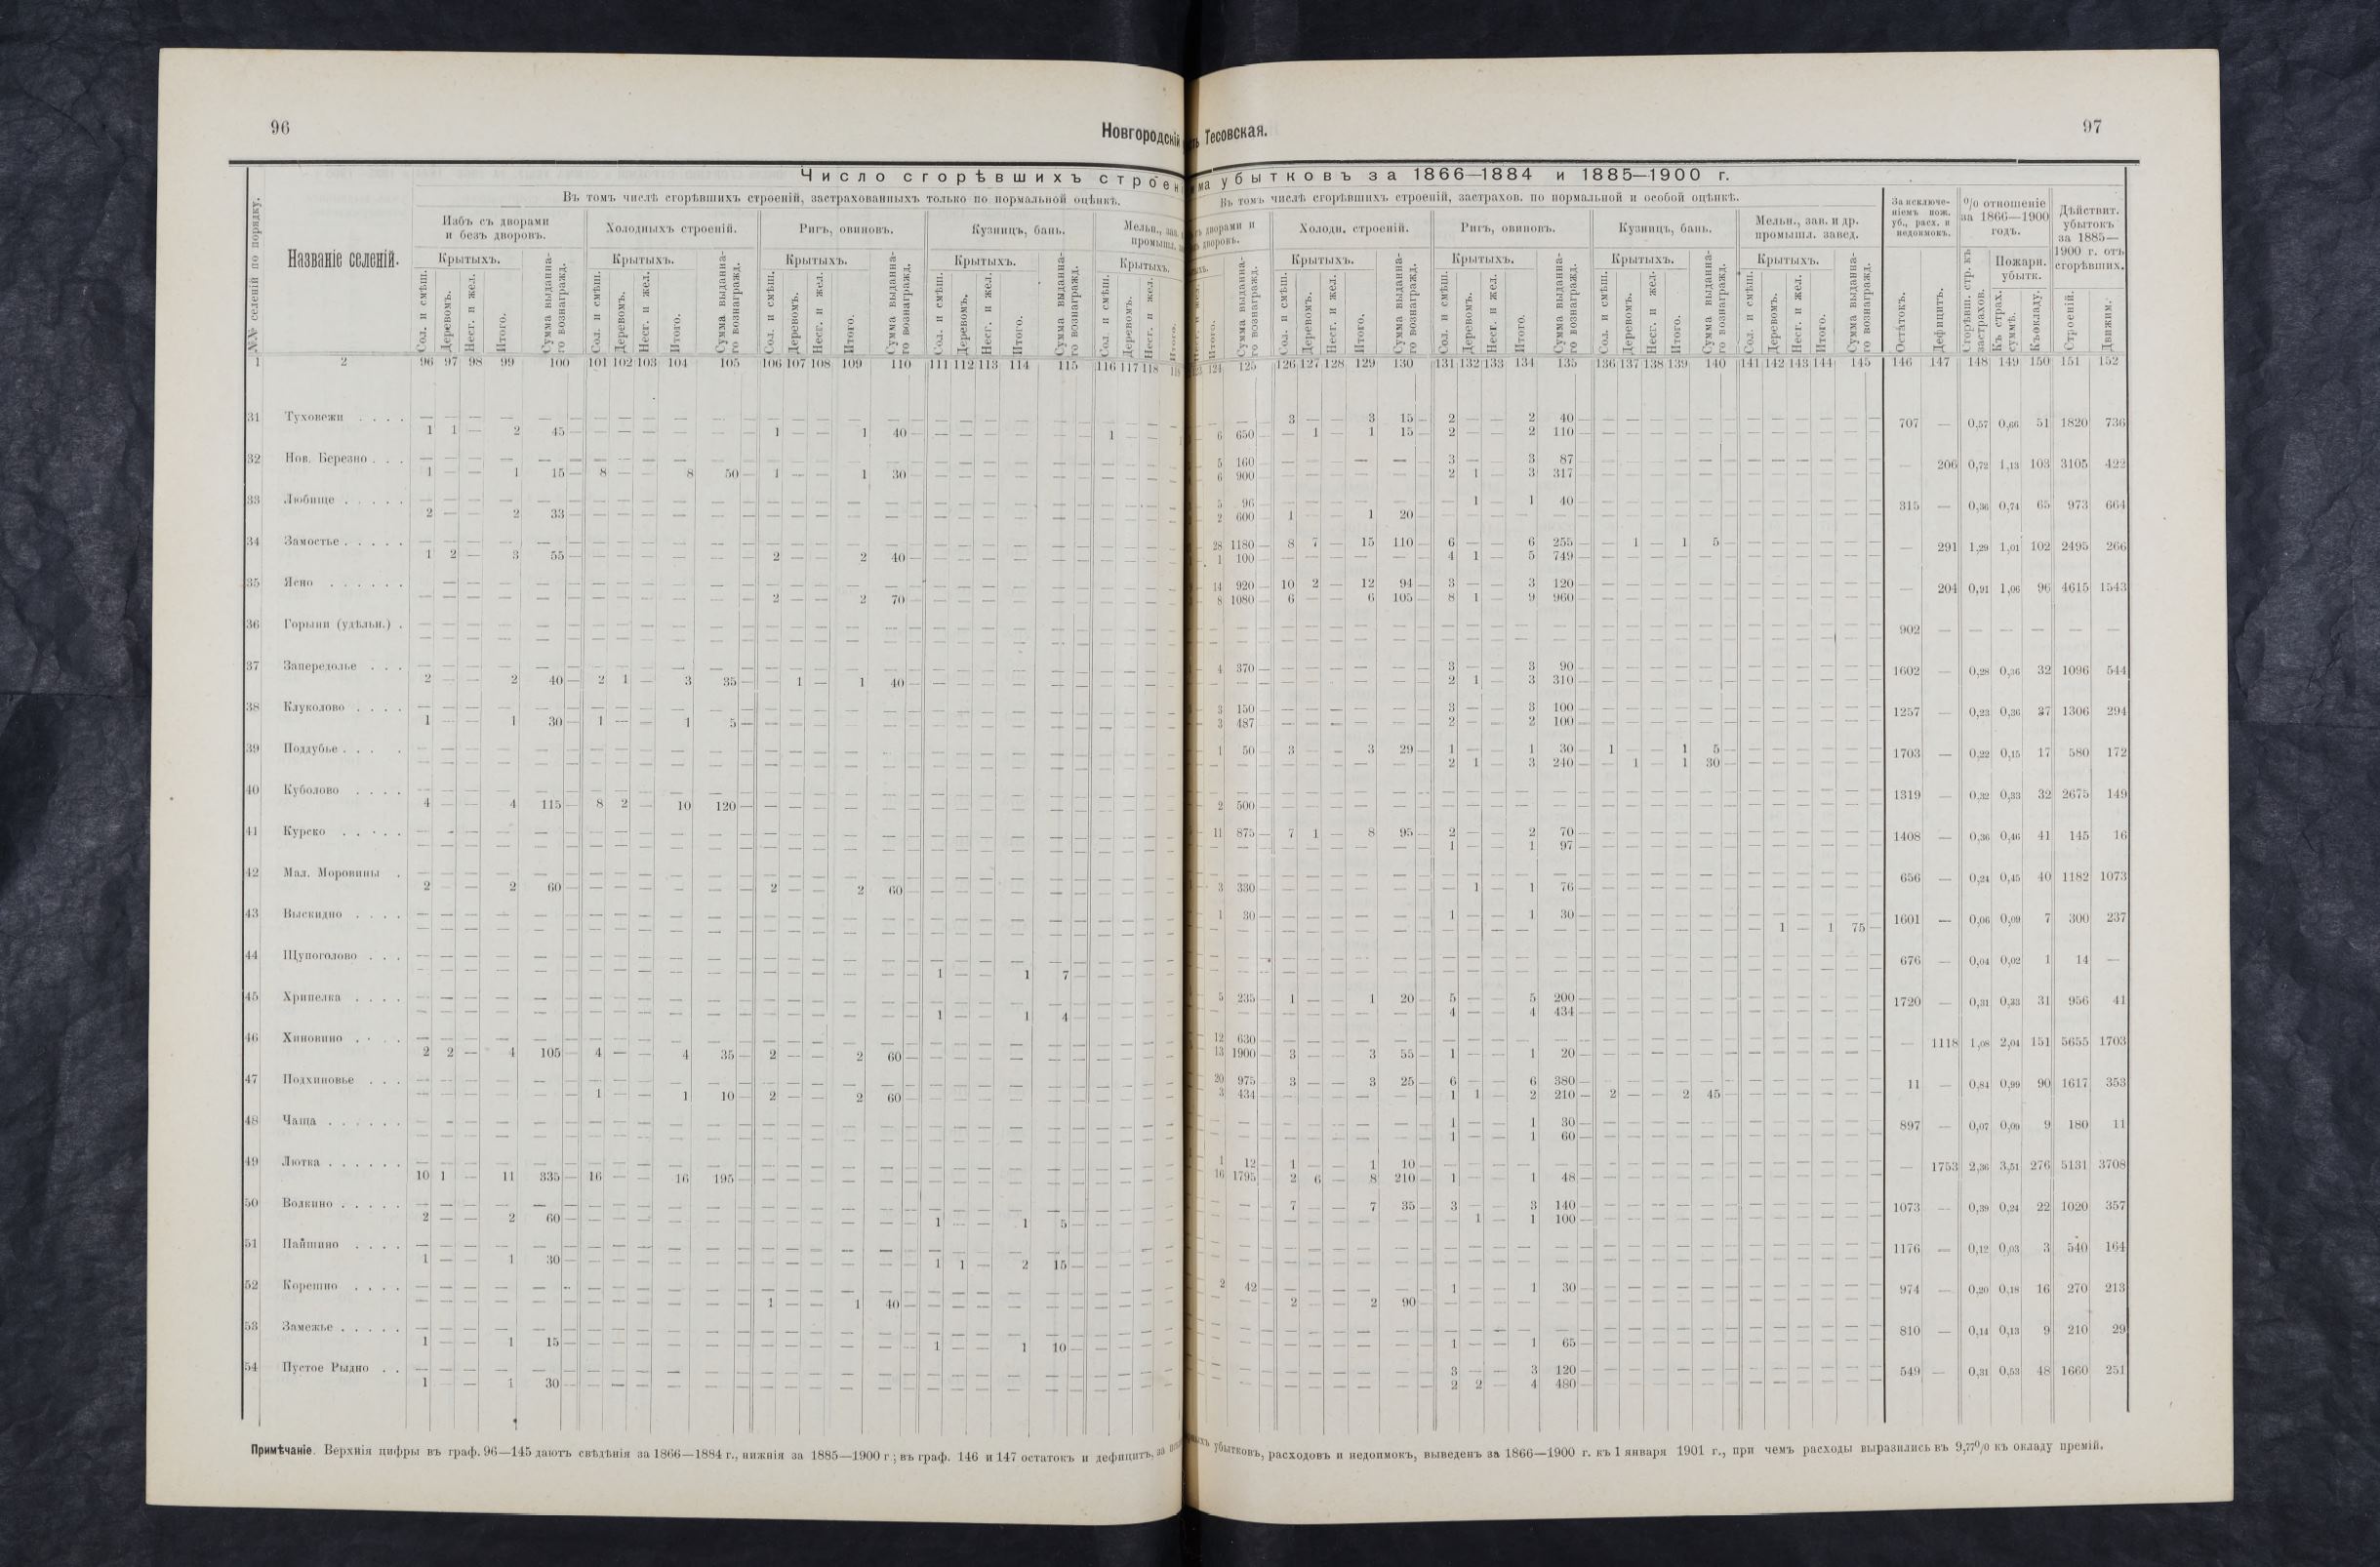 96
Новгородскій
ть Тесовская.
97
Число сгорѣвшихъ строен
ма убытковъ за 1866—1884 и 1885—1900 г.
№№ селеній по порядку.
Названіе селеній.
Въ томъ числѣ сгорѣвшихъ строеній, застрахованныхъ только по нормальной оцѣнкѣ.
Въ томъ числѣ сгорѣвшихъ строеній, застрахов. по нормальной и особой оцѣнкѣ.
Избъ съ дворами и безъ дворовъ.
Холодныхъ строеній.
Ригъ, овиновъ.
Кузницъ, бань.
Мельн., зав.
промышл.
дворами и
дворовъ.
Холодн. строеній.
Ригъ, овиновъ.
Кузницъ, бань.
Мельн., зав. и др. промышл. завед.
За исключе-
ніемъ пож.
уб., расх. и
недоимокъ.
% отношеніе
за 1866—1900
годъ.
Дѣйствит.
убытокъ
за 1885—
1900 г. отъ
сгорѣвших.
Крытыхъ.
Сол. и смѣш.
Деревомъ.
Несг. и жел.
Итого.
Сумма выданна-
го вознагражд.
Остатокъ.
Дефицитъ.
Сгорѣвш. стр. къ
застрахов.
Пожарн.
убытк.
Къ страх.
суммѣ.
Къ окладу.
Строеній.
Движим.
1 2 96 97 98 99 100 101 102 103 104 105 106 107 108 109 110 111 112 113 114 115 116 117 118
124 125 126 127 128 129 130 131 132 133 134 135 136 137 138 139 140 141 142 143 144 145 146 147 148 149 150 151 152
31 Туховежи . . . . — — — — — — — — — — — — — — — — — — — —
1 1 — 2 45 — — — — — 1 — — 1 40 — — — — — 1 — —
— — 3 — — 3 15 2 — — 2 40 — — — — — — — — — —
6 650 — 1 — 1 15 2 — — 2 110 — — — — — — — — — —
707 — 0,57 0,66 51 1820 736
32 Нов. Березно . . .
1 — — 1 15 8 — — 8 50 1 — — 1 30 — — — — —
5 160 — — — — — 3 — — 3 87
6 900 — — — — — 2 1 — 3 317
— 206 0,72 1,13 103 3105 422
33 Любище . . . . .
2 — — 2 33
5 96 — — — — — — 1 — 1 40
2 600 1 — — 1 20
315 — 0,36 0,74 65 973 664
34 Замостье . . . . .
1 2 — 3 55 — — — — — 2 — — 2 40
28 1180 8 7 — 15 110 6 — — 6 255 — 1 — 1 5
1 100 — — — — — 4 1 — 5 749
— 291 1,29 1,01 102 2495 266
35 Ясно . . . . . .
— — — — — — — — — — 2 — — 2 70
14 920 10 2 — 12 94 3 — — 3 120
8 1080 6 — — 6 105 8 1 — 9 960
— 204 0,91 1,06 96 4615 1543
36 Горыни (удѣльн.) .
902 — — — — — —
37 Запередолье . . .
2 — — 2 40 2 1 — 3 35 — 1 — 1 40
4 370 — — — — — 3 — — 3 90
— — — — — — — 2 1 — 3 310
1602 — 0,28 0,36 32 1096 544
38 Клуколово . . . .
1 — — 1 30 1 — — 1 5
3 150 — — — — — 3 — — 3 100
3 487 — — — — — 2 — — 2 100
1257 — 0,23 0,36 37 1306 294
39 Поддубье . . . .
1 50 3 — — 3 29 1 — — 1 30 1 — — 1 5
— — — — — — — 2 1 — 3 240 — 1 — 1 30
1703 — 0,22 0,15 17 580 172
40 Куболово . . . .
4 — — 4 115 8 2 — 10 120
2 500
1319 — 0,32 0,33 32 2675 149
41 Курско . . . . .
11 875 7 1 — 8 95 2 — — 2 70
— — — — — — — 1 — — 1 97
1408 — 0,36 0,46 41 145 16
42 Мал. Моровины .
2 — — 2 60 — — — — — 2 — — 2 60
3 330 — — — — — — 1 — 1 76
656 — 0,24 0,45 40 1182 1073
43 Выскидно . . . .
1 30 — — — — — 1 — — 1 30
— 1 — 1 75
1601 — 0,06 0,09 7 300 237
44 Щупоголово . . .
1 — — 1 7
676 — 0,04 0,02 1 14 —
45 Хрипелка . . . .
1 — — 1 4
5 235 1 — — 1 20 5 — — 5 200
— — — — — — — 4 — — 4 434
1720 — 0,31 0,33 31 956 41
46 Хиновино . . . .
2 2 — 4 105 4 — — 4 35 2 — — 2 60
12 630
13 1900 3 — — 3 55 1 — — 1 20
— 1118 1,08 2,04 151 5655 1703
47 Подхиновье . . .
— — — — — 1 — — 1 10 2 — — 2 60
20 975 3 — — 3 25 6 — — 6 380
3 434 — — — — — 1 1 — 2 210 2 — — 2 45
11 — 0,84 0,99 90 1617 353
48 Чаща . . . . . .
1 — — 1 30
1 — — 1 60
897 — 0,07 0,09 9 180 11
49 Лютка . . . . . .
10 1 — 11 335 16 — — 16 195
1 12 1 — — 1 10
16 1795 2 6 — 8 210 1 — — 1 48
— 1753 2,36 3,51 276 5131 3708
50 Волкино . . . . .
2 — — 2 60 — — — — — — — — — — 1 — — 1 5
— — 7 — — 7 35 3 — — 3 140
— — — — — — — — 1 — 1 100
1073 — 0,39 0,24 22 1020 357
51 Пайшино . . . .
1 — — 1 30 — — — — — — — — — — 1 1 — 2 15
1176 — 0,12 0,03 3 540 164
52 Корешно . . . .
— — — — — — — — — — 1 — — 1 40
2 42 — — — — — 1 — — 1 30
2 — — 2 90
974 — 0,20 0,18 16 270 213
53 Замежье . . . . .
1 — — 1 15 — — — — — — — — — — 1 — — 1 10
1 — — 1 65
810 — 0,14 0,13 9 210 29
54 Пустое Рыдно . .
1 — — 1 30
3 — — 3 120
2 2 — 4 480
549 — 0,31 0,53 48 1660 251
Примѣчаніе. Верхнія цифры въ граф. 96—145 даютъ свѣдѣнія за 1866—1884 г., нижнія за 1885—1900 г.; въ граф. 146 и 147 остатокъ и дефицитъ, за
убытковъ, расходовъ и недоимокъ, выведенъ за 1866—1900 г. къ 1 января 1901 г., при чемъ расходы выразились въ 9,77% къ окладу премій.